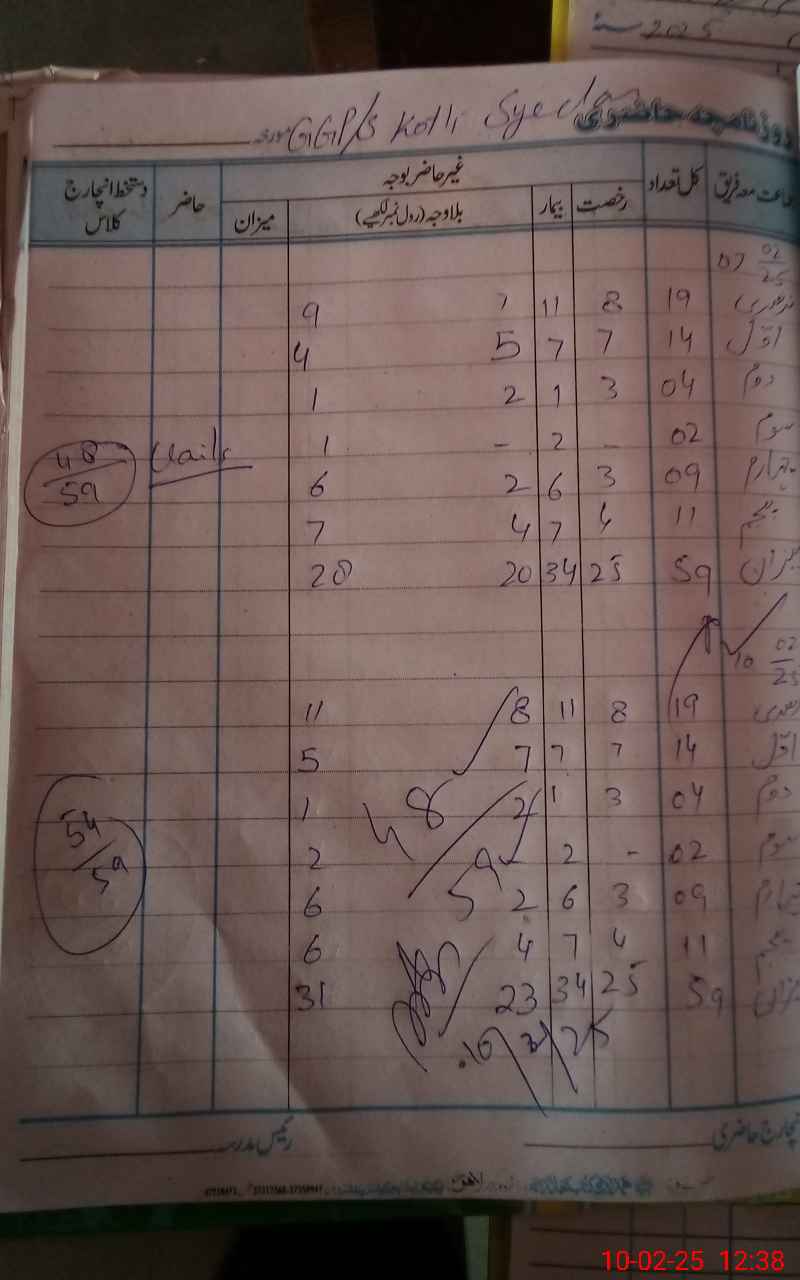 سنہ 2025
GGP/S Kotli Syeda
روزنامچہ حاضری
مورخہ
جماعت معہ فریق کل تعداد غیر حاضر بوجہ حاضر دستخط انچارج کلاس
رخصت بیمار بلاوجہ (رول نمبر لکھیے) میزان
07 02/25
19 8 11 7 9
اوّل 14 7 7 5 4
دوم 04 3 1 2 1
سوم 02 - 2 - 1
چہارم 09 3 6 2 6
48/59
پنجم 11 4 7 4 7
میزان 59 25 34 20 28
10 02/25
19 8 11 8 11
اوّل 14 7 7 7 5
دوم 04 3 1 2 1
48/59
سوم 02 - 2 - 2
54/59
چہارم 09 3 6 2 6
پنجم 11 4 7 4 6
میزان 59 25 34 23 31
انچارج حاضری رئیس مدرسہ
10-02-25 12:38